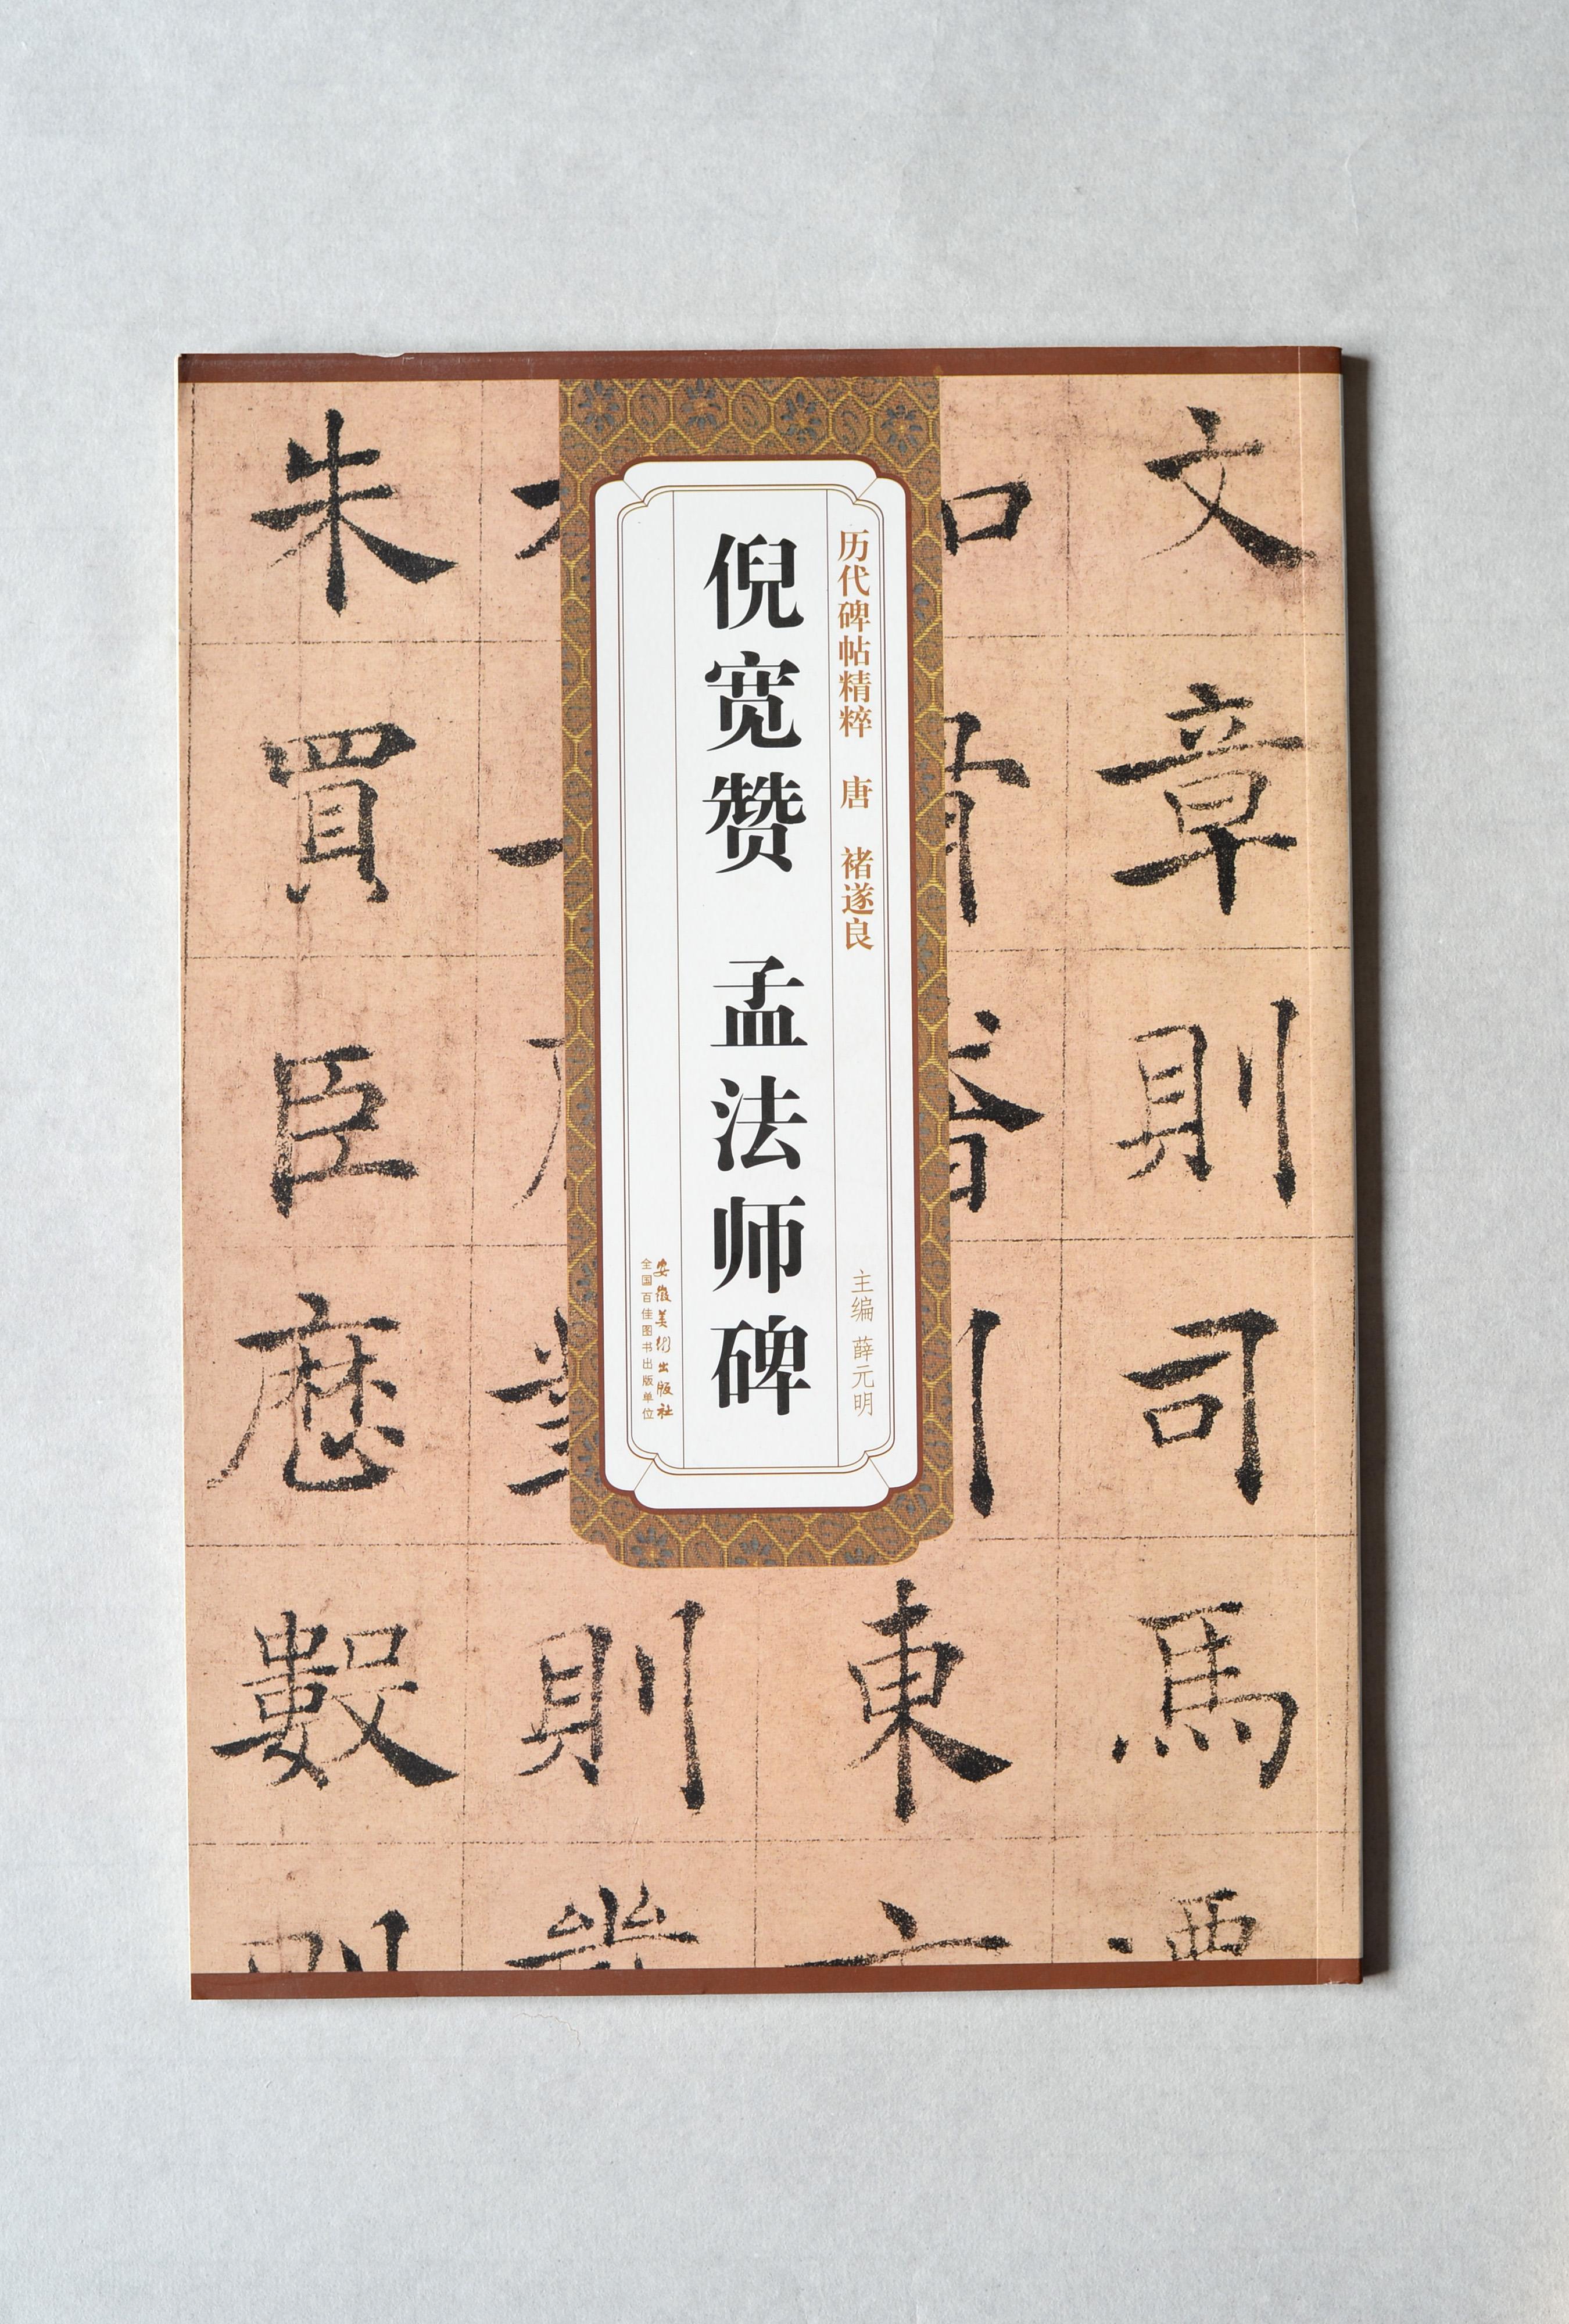 历代碑帖精粹 唐 褚遂良
主编 薛元明
倪宽赞 孟法师碑
安徽美术出版社
全国百佳图书出版单位
文章則司馬
東
則
朱買臣歷數